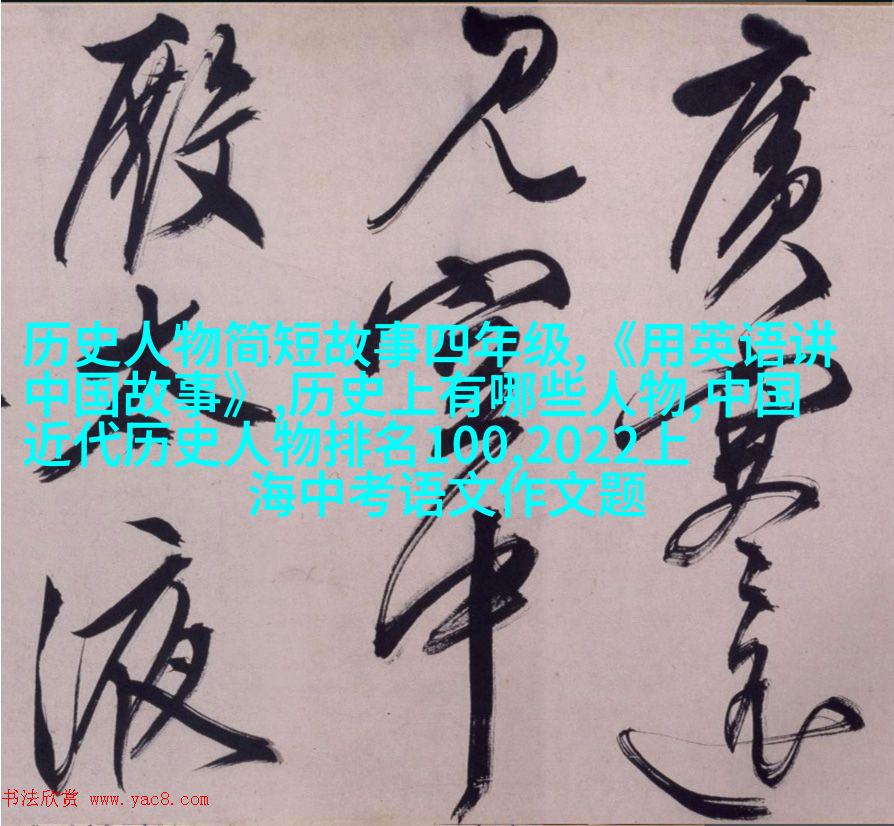 廣寒遙
見空中
殿太液
历史人物简短故事四年级,《用英语讲
中国故事》,历史上有哪些人物,中国
近代历史人物排名100,2022上
海中考语文作文题
书法欣赏 www.yac8.com